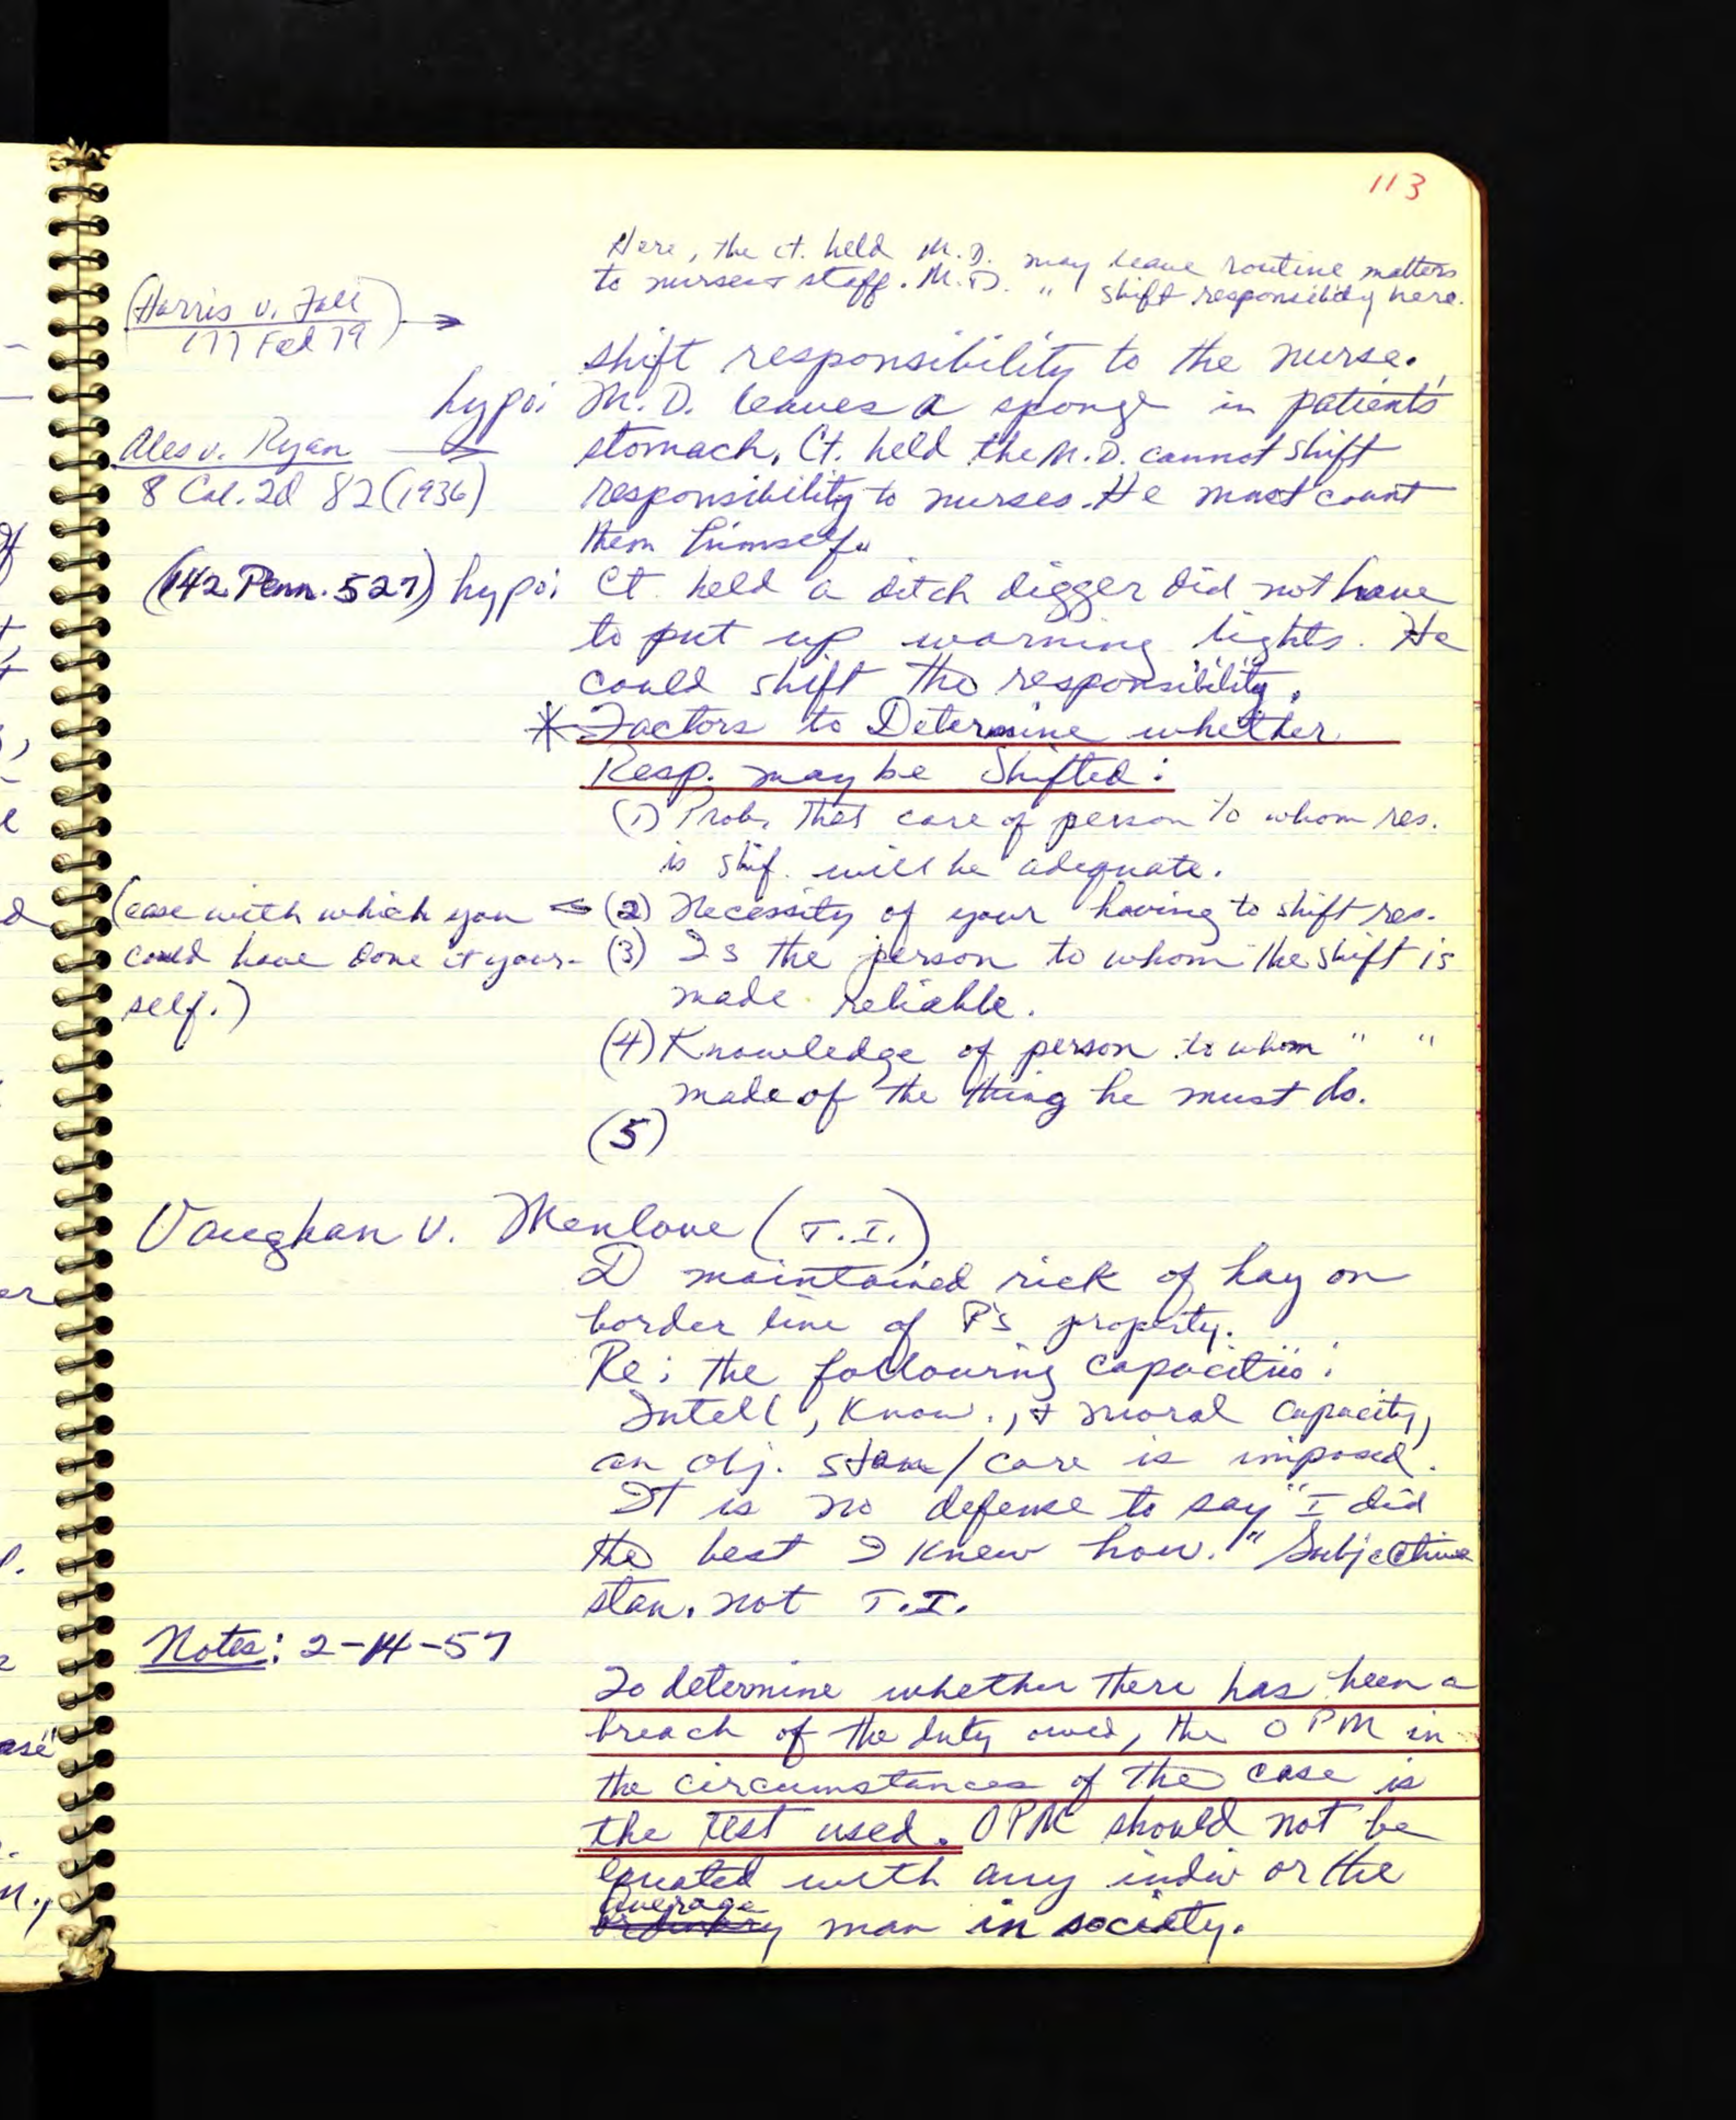 113
Here, the ct. held M.D. may leave routine matters
to nurse + staff. M.D. " shift responsibility here.
(Harris v. Fall
177 Fed 79) →
shift responsibility to the nurse.
hypo: M.D. leaves a sponge in patient's
Ales v. Ryan → stomach, Ct. held the M.D. cannot shift
8 Cal. 2d 82 (1936) responsibility to nurses. He must count
them himself.
(142 Penn. 527) hypo: Ct. held a ditch digger did not have
to put up warning lights. He
could shift the responsibility.
* Factors to Determine whether
Resp. may be Shifted:
(1) Prob. that care of person to whom res.
is shif. will be adequate.
(ease with which you ← (2) Necessity of your having to shift res.
could have done it your- (3) Is the person to whom the shift is
self.) made reliable.
(4) Knowledge of person to whom " "
made of the thing he must do.
(5)
Vaughan v. Menlove (T.I.)
D maintained rick of hay on
border line of P's property.
Re: the following capacities:
Intell, Know., + moral capacity,
an obj. stan/care is imposed.
It is no defense to say "I did
the best I knew how." Subjective
stan. not T.I.
Notes: 2-14-57
To determine whether there has been a
breach of the duty owed, the OPM in
the circumstances of the case is
the test used. OPM should not be
equated with any indiv or the
Average
ordinary man in society.